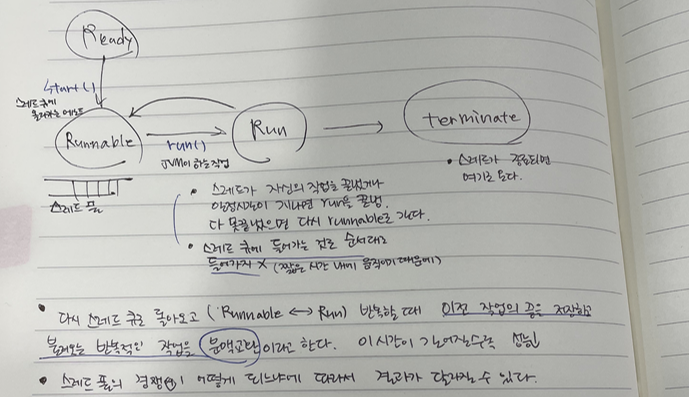 Ready
start()
스레드 큐에
올라가는 메소드
Runnable
run()
JVM이 하는 작업
Run
terminate
스레드 풀
• 스레드가 종료되면
여기로 온다.
• 스레드가 자신의 작업을 끝냈거나
일정시간이 지나면 run을 끝냄.
다 못끝냈으면 다시 runnable로 간다.
• 스레드 큐에 들어가는 것은 순서대로
들어가지 X (짧은 시간 내에 움직이기 때문에)
• 다시 스레드 큐로 돌아오고 (Runnable ↔ Run) 반복할 때 이전 작업의 내용을 저장하고
불러오는 반복적인 작업을 문맥교환 이라고 한다. 이시간이 길어질수록 성능
• 스레드 풀의 경쟁이 어떻게 되느냐에 따라서 결과가 달라질 수 있다.